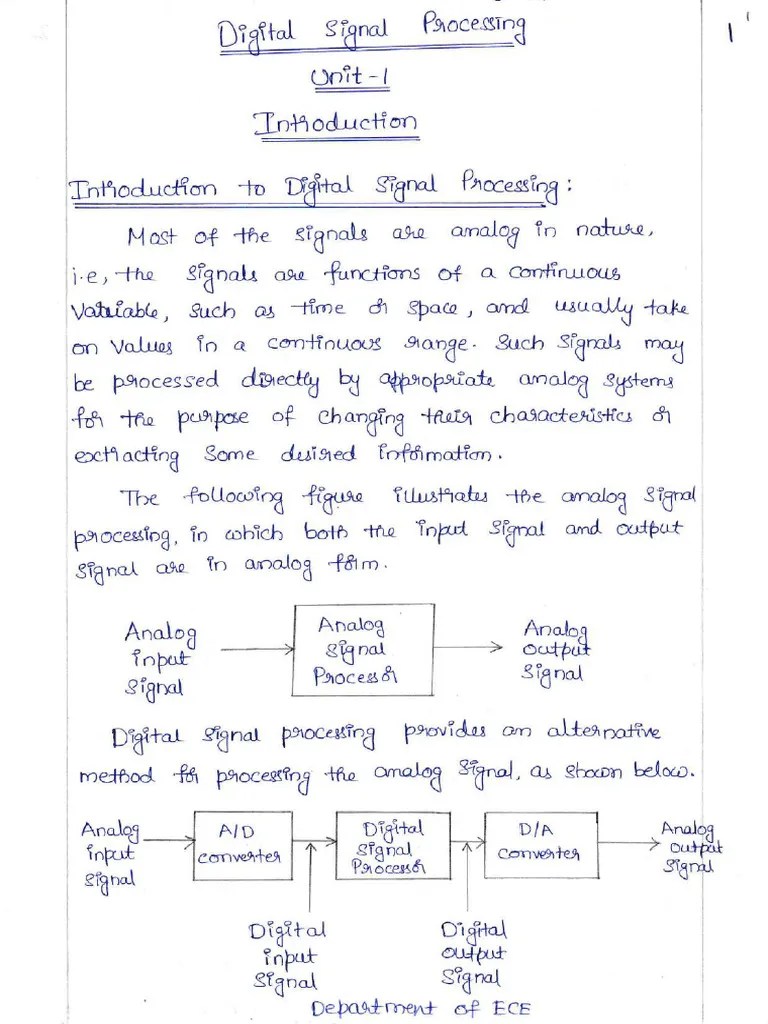 Digital Signal Processing
1
Unit-1
Introduction
Introduction to Digital Signal Processing:
Most of the signals are analog in nature,
i.e, the signals are functions of a continuous
variable, such as time or space, and usually take
on values in a continuous range. Such signals may
be processed directly by appropriate analog systems
for the purpose of changing their characteristics or
extracting some desired information.
The following figure illustrates the analog signal
processing, in which both the input signal and output
signal are in analog form.
Analog
input
signal
Analog
Signal
Processor
Analog
output
signal
Digital signal processing provides an alternative
method for processing the analog signal, as shown below.
Analog
input
signal
A/D
converter
Digital
Signal
Processor
D/A
converter
Analog
output
signal
Digital
input
signal
Digital
output
signal
Department of ECE